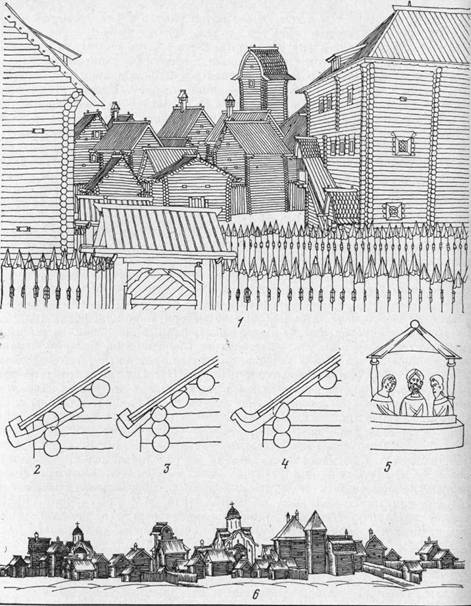 1
2 3 4 5
6